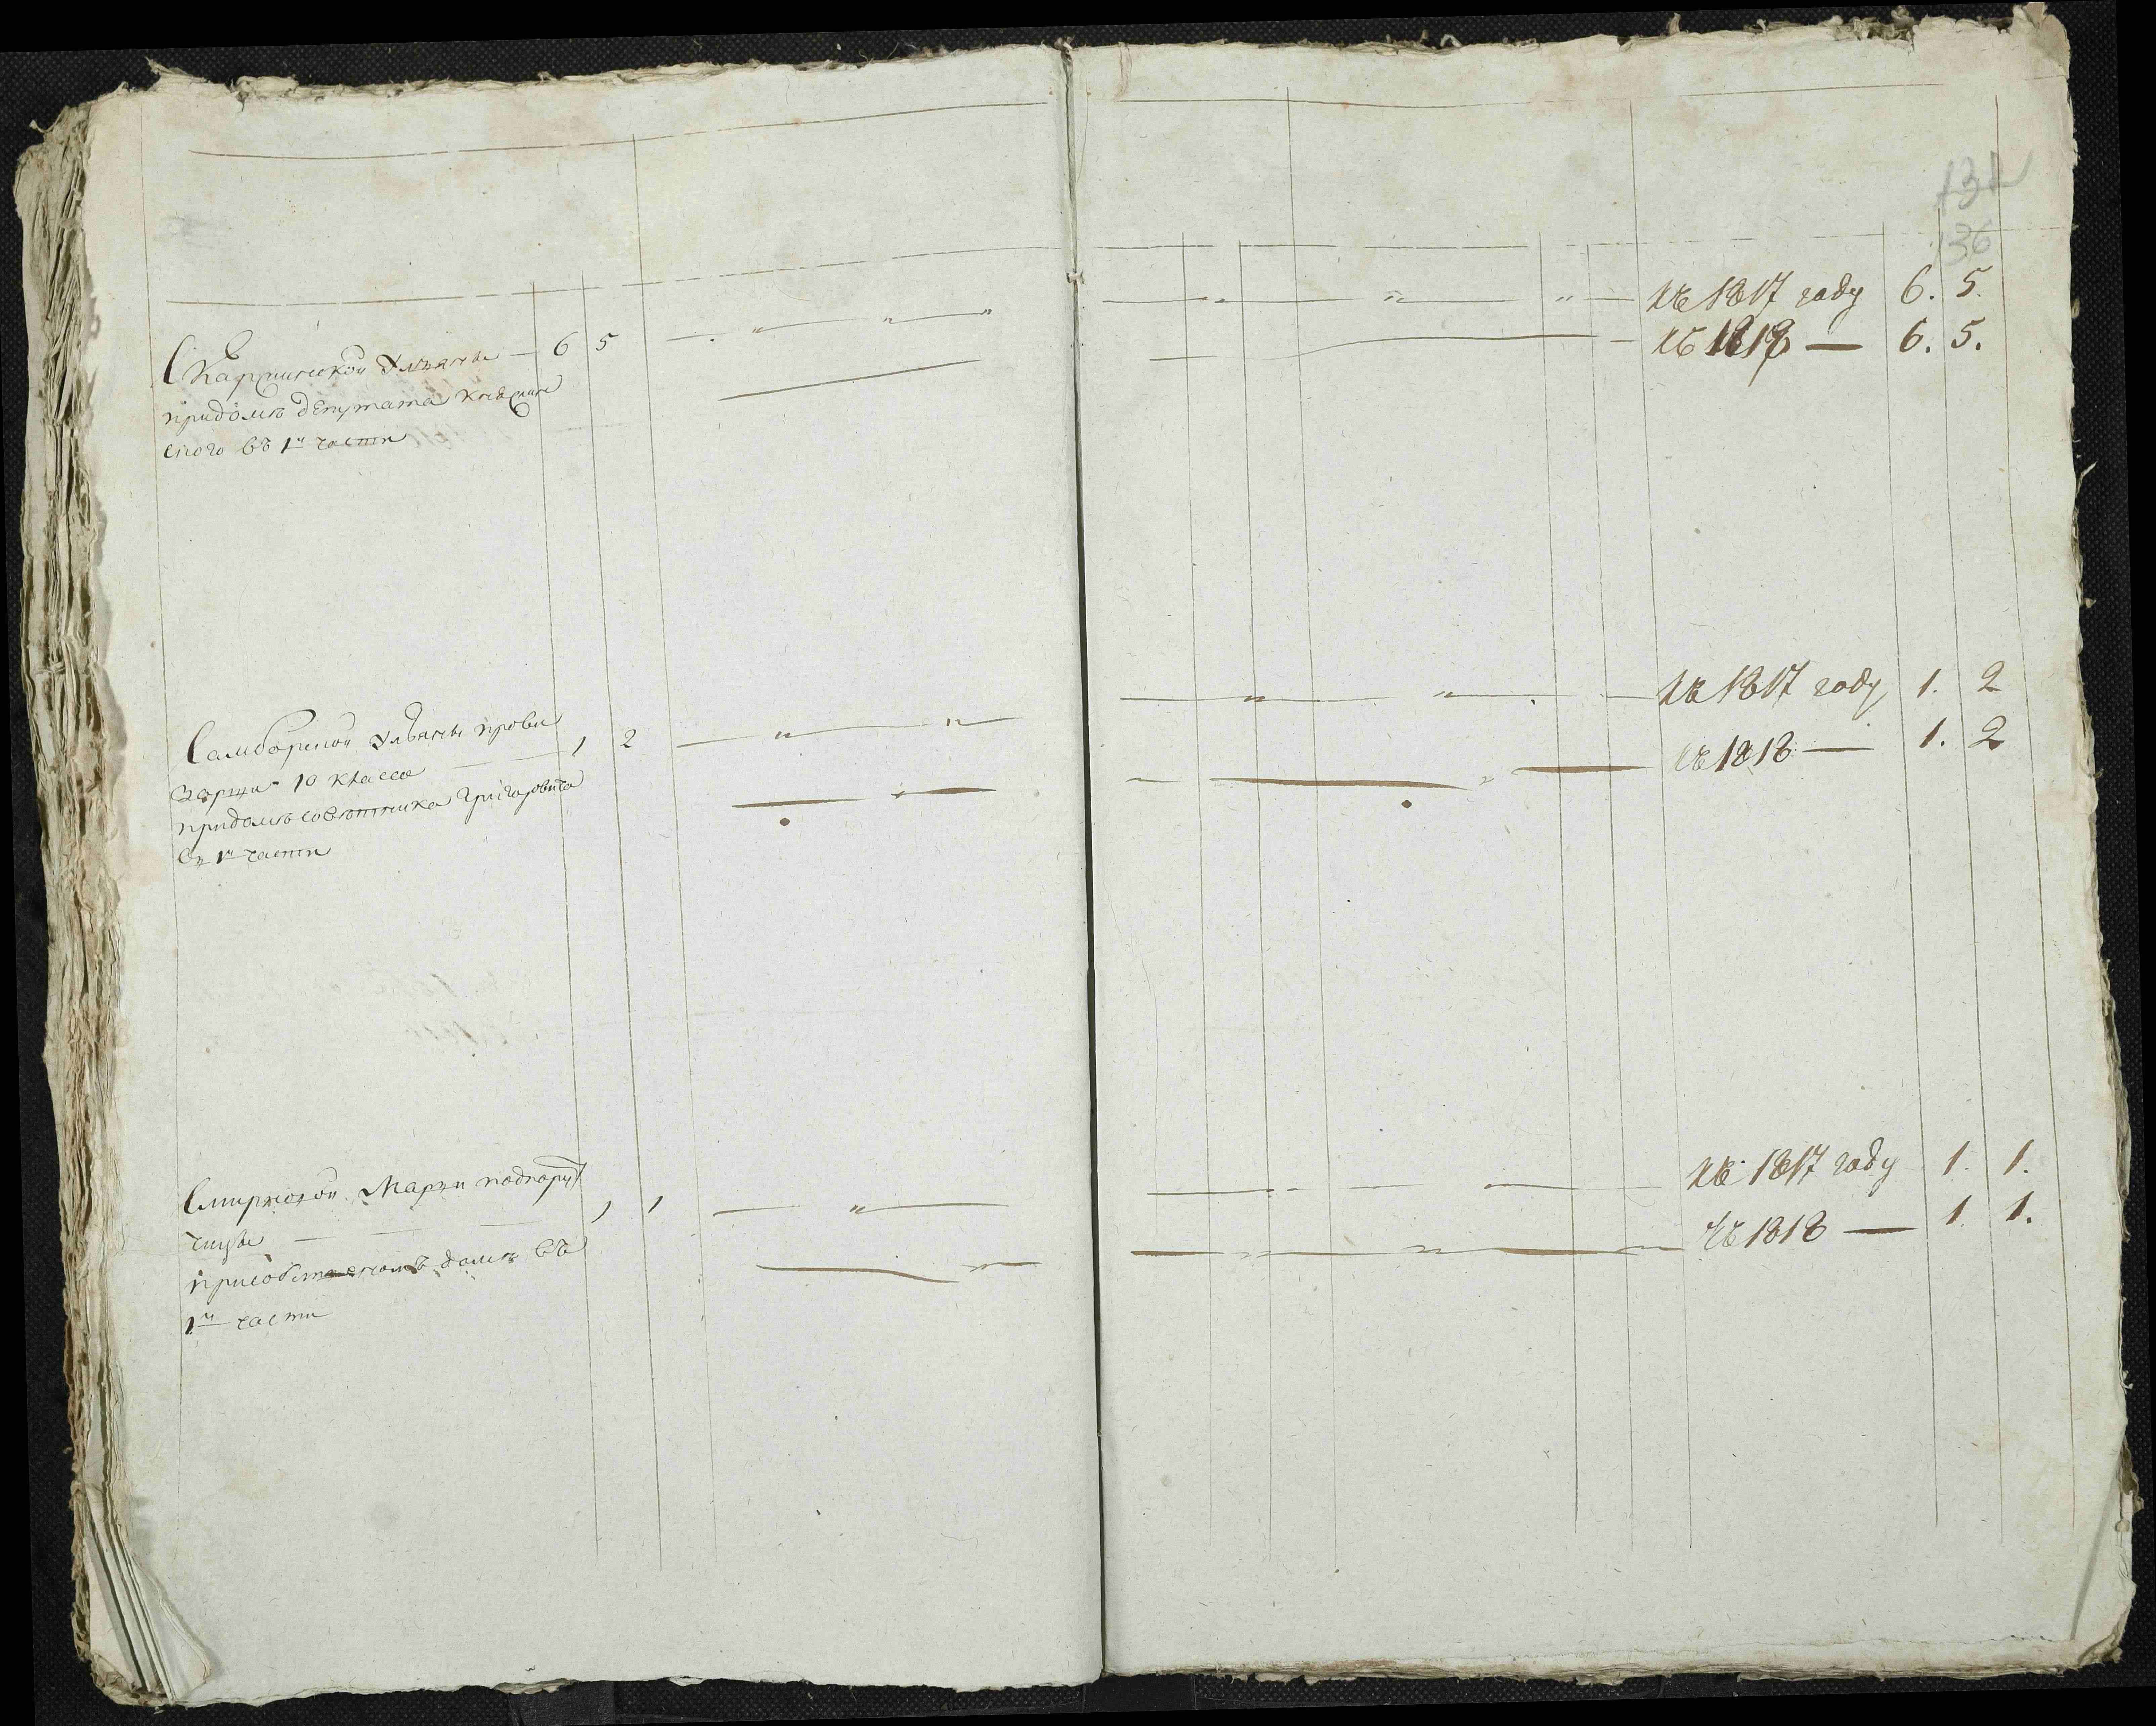 131
136
Скаржинской Ульяны — 6 5
придомѣ депутата
ского въ 1й части
къ 1817 году 6. 5.
къ 1818 — 6. 5.
Самборской Ульяны прови
зорши 10 класса — 1 2
придомѣ советника Григоровича
въ 1й части
къ 1817 году 1. 2
къ 1818 — 1. 2
Смирновой Марьи подпору
чицы — 1 1
присобственомъ домѣ въ
1й части
къ 1817 году 1. 1.
къ 1818 — 1. 1.